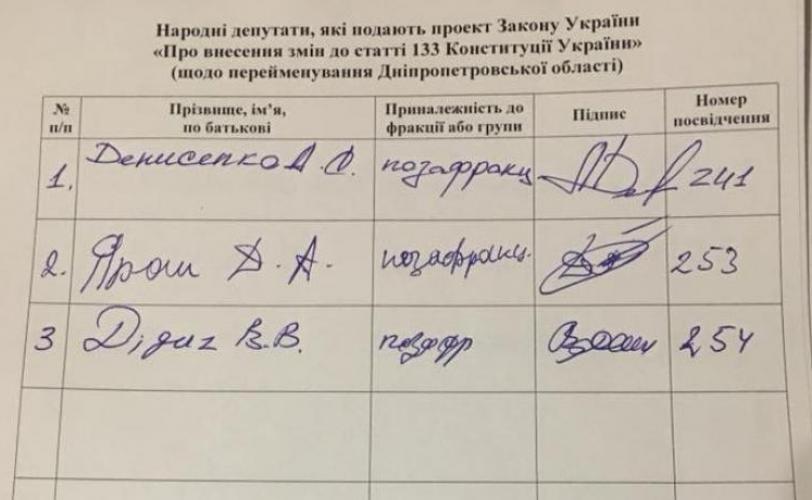 Народні депутати, які подають проект Закону України
«Про внесення змін до статті 133 Конституції України»
(щодо перейменування Дніпропетровської області)
№ п/п Прізвище, ім’я, по батькові Приналежність до фракції або групи Підпис Номер посвідчення
1. Денисенко А. С. позафракц 241
2. Ярош Д. А. позафракц. 253
3 Дідич В.В. позафр 254